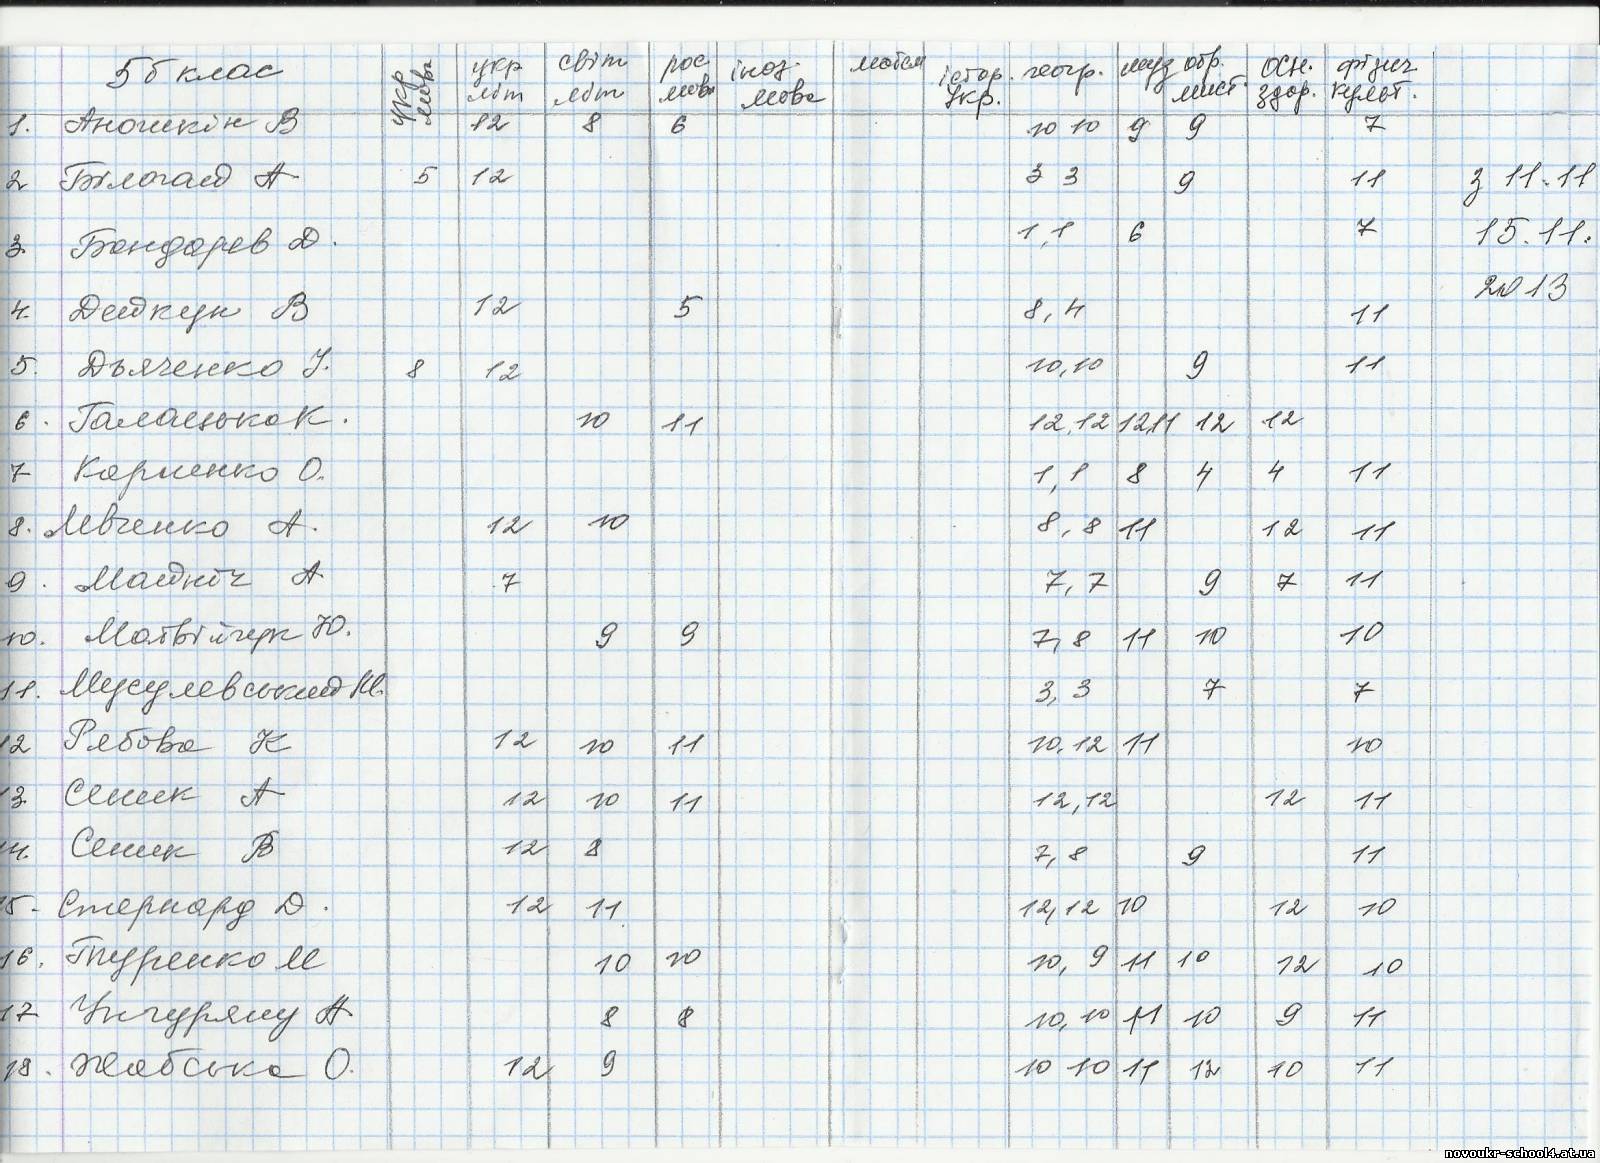 5 б клас укр мова укр літ світ літ рос мова іноз. мова матем істор. Укр. геогр. муз обр. мист. осн. здор. фізич культ.
1. Аношкін В 12 8 6 10 10 9 9 7
2 Білогай А 5 12 3 3 9 11 з 11.11
3. Бондарев Д. 1,1 6 7 15.11.
2013
4. Дейкун В 12 5 8,4 11
5. Дьяченко У. 8 12 10,10 9 11
6. Галацько К. 10 11 12,12 12,11 12 12
7 Карпенко О. 1,1 8 4 4 11
8. Левченко А. 12 10 8,8 11 12 11
9. А 7 7,7 9 7 11
10. Матвійчук Ю. 9 9 7,8 11 10 10
11. Мусулевський 3,3 7 7
12 Рябова К 12 10 11 10.12 11 10
13 Сеник А 12 10 11 12,12 12 11
14. Сеник В 12 8 7,8 9 11
15. Стернард Д. 12 11 12,12 10 12 10
16. М 10 10 10, 9 11 10 12 10
17 Унгуряну А 8 8 10,10 11 10 9 11
18. О. 12 9 10 10 11 12 10 11
novoukr-school4.at.ua